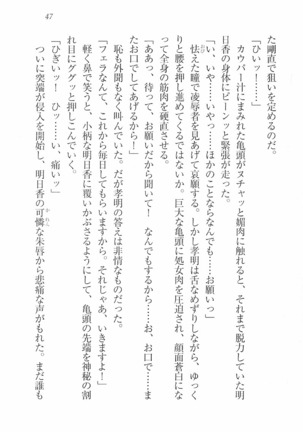 47
た剛直で狙いを定めるのだ。
「ひいッ……！」
カウパー汁にまみれた亀頭がヌチャッと媚肉に触れると、それまで脱力していた明
日香の身体にビーンッと緊張が走った。
「い、いや……いやっ……ほかのことならなんでも……お願いっ」
怯えた瞳で凌辱者を見あげて哀願する。しかし孝明は舌なめずりしながら、ゆっく
りと腰を押し進めてくるではないか。巨大な亀頭に処女肉を圧迫され、顔面蒼白にな
って全身の筋肉を硬直させる。
「ああっ、待って、お願いだから聞いて！　なんでもするから……お、お口で……ま
たお口でしてあげるから！」
恥も外聞もなく叫んでいた。だが孝明の答えは非情なものだった。
「フェラなんて、これから毎日してもらいますから。それじゃあ、いきますよ！」
軽く鼻で笑うと、小柄な明日香に覆いかぶさるようにして、亀頭の先端を神秘の割
れ目にググッと押しこんでいく。
「ひぎいッ！　ひっ……い、痛いッ」
ついに突端が侵入を開始し、明日香の可憐な朱唇から悲痛な声がもれた。まだ誰も